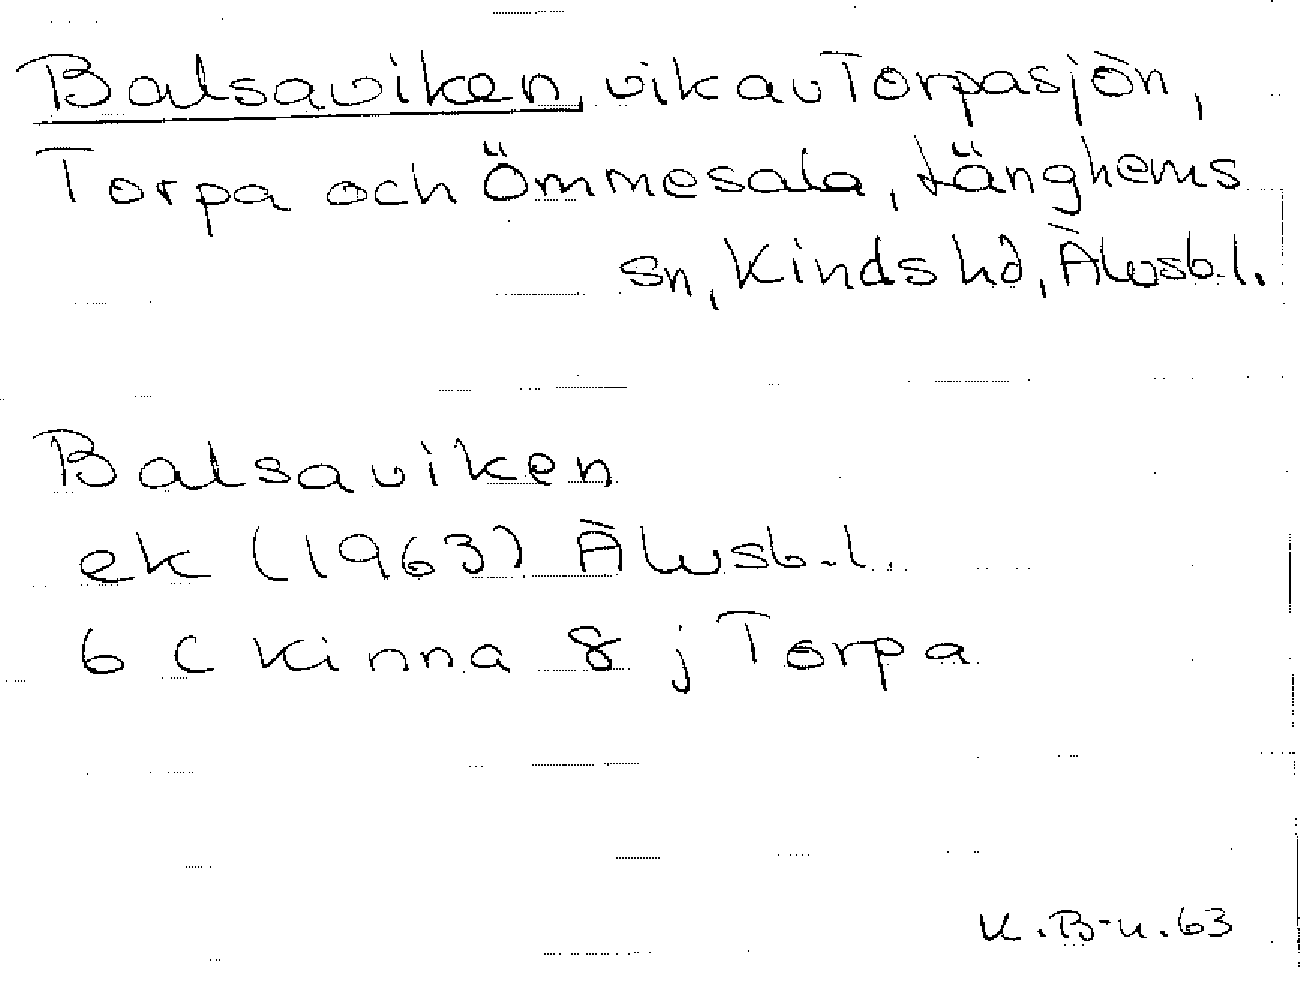 Balsaviken, vik av Torpasjön,
Torpa och Ömmesala, Länghems
sn, Kinds hd, Älvsb.l.
Balsaviken
ek (1963) Älvsb.l.
6 C Kinna 8 j Torpa
K.B-n.63